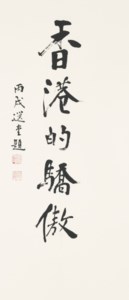 香港的驕傲
丙戌選堂題